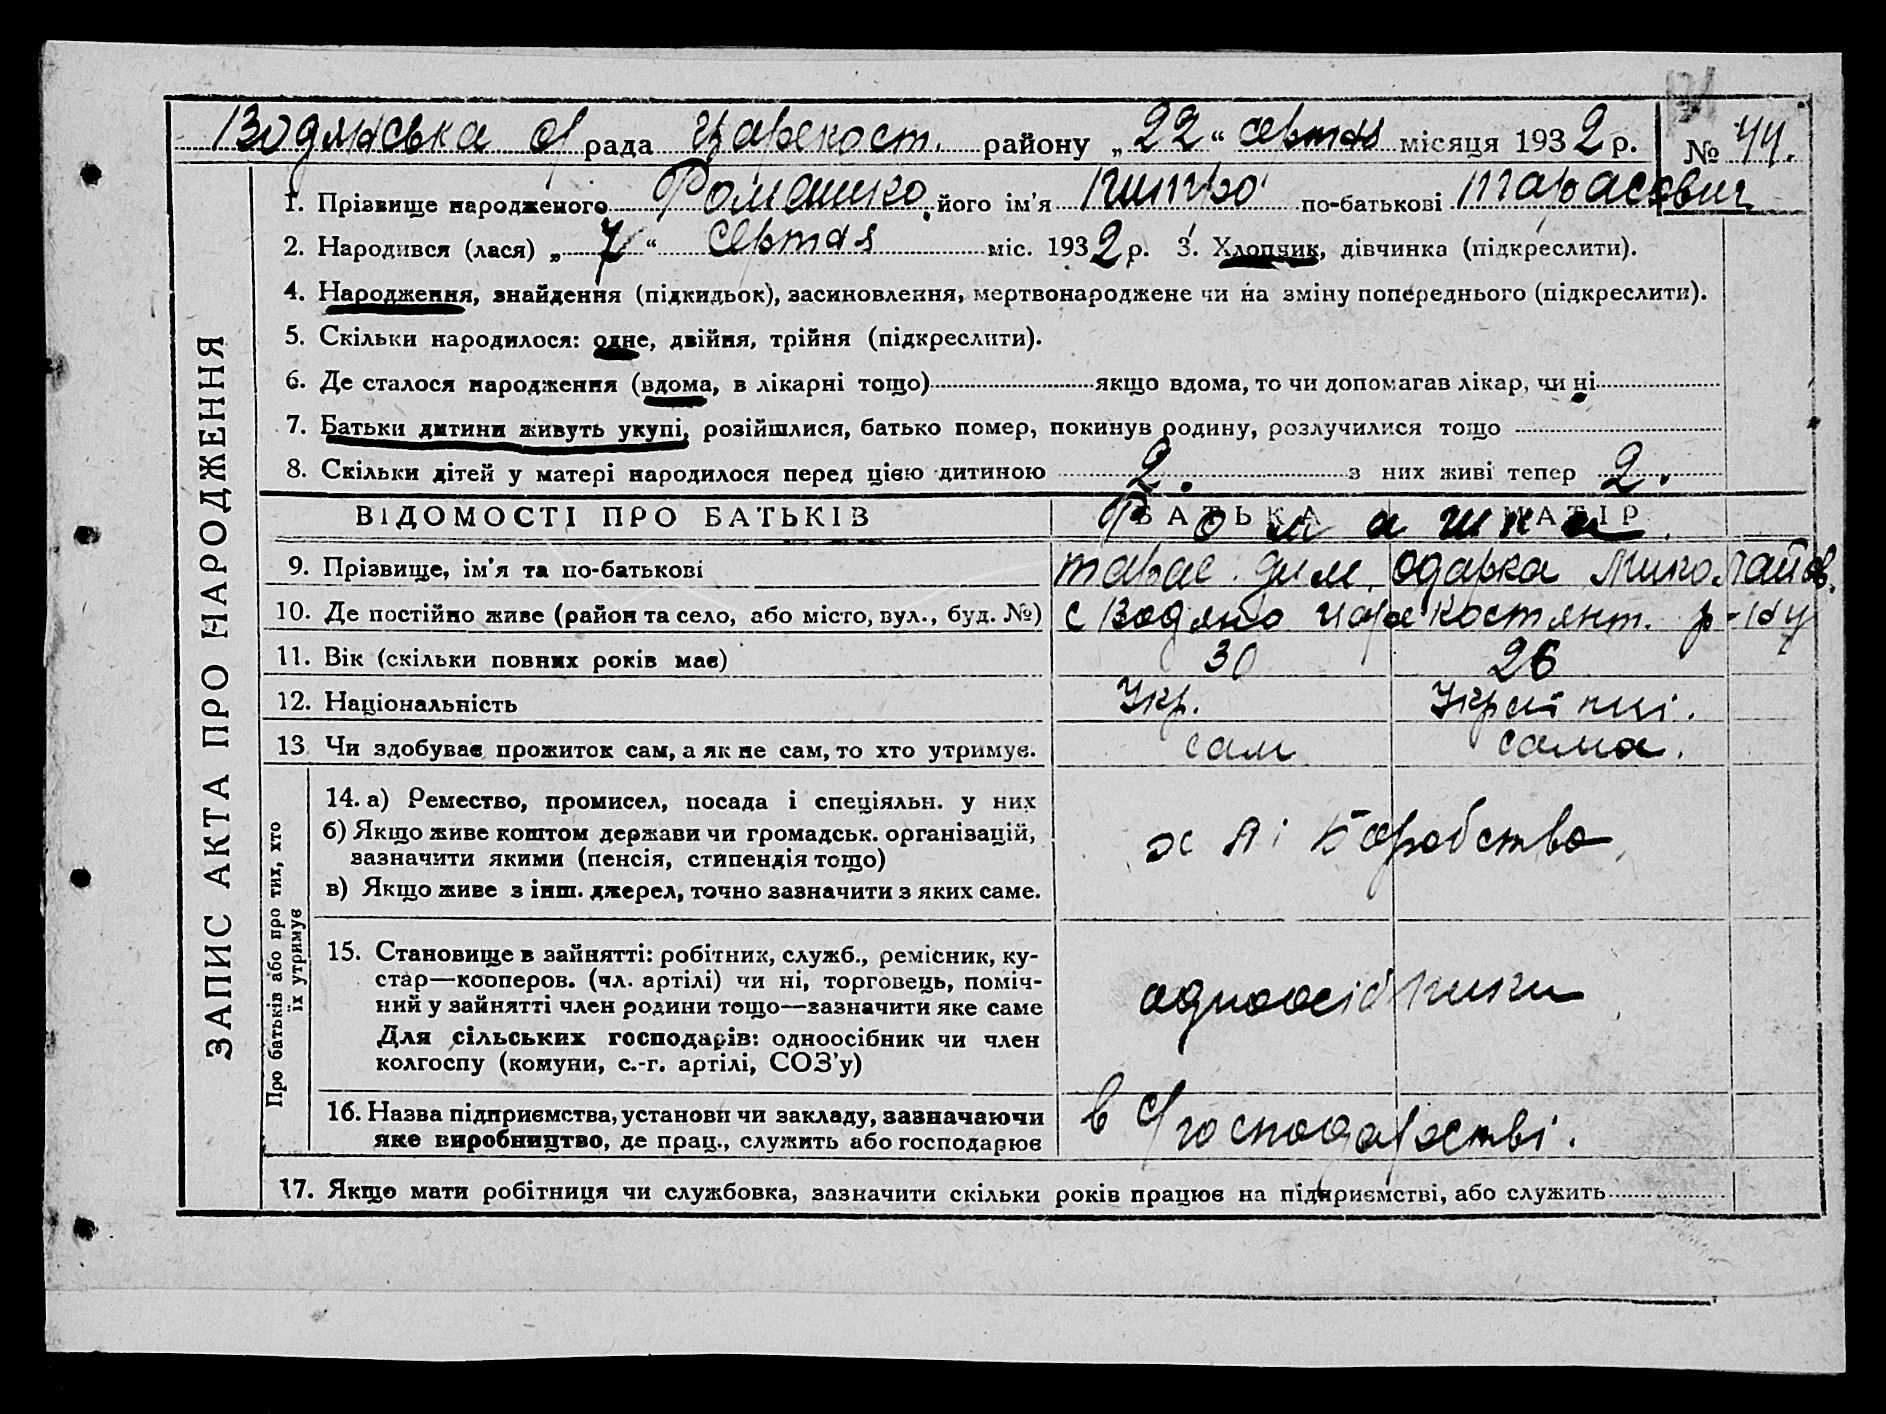 Водянська с/ рада Царекост. району „22“ серпня місяця 1932 р. № 44.
1. Прізвище народженого Ромашко, його ім'я Дмитро по-батькові Тарасович
2. Народився (лася) „7“ серпня міс. 1932 р. 3. Хлопчик, дівчинка (підкреслити).
4. Народження, знайдення (підкидьок), засиновлення, мертвонароджене чи на зміну попереднього (підкреслити).
5. Скільки народилося: одне, двійня, трійня (підкреслити).
6. Де сталося народження (вдома, в лікарні тощо) якщо вдома, то чи допомагав лікар, чи ні
7. Батьки дитини живуть укупі, розійшлися, батько помер, покинув родину, розлучилися тощо
8. Скільки дітей у матері народилося перед цією дитиною 2. з них живі тепер 2.
ЗАПИС АКТА ПРО НАРОДЖЕННЯ
ВІДОМОСТІ ПРО БАТЬКІВ БАТЬКА МАТІР
Ромашки.
9. Прізвище, ім'я та по-батькові Тарас Дим. Одарка Миколаїов.
10. Де постійно живе (район та село, або місто, вул., буд. №) с Водяно Царекостянт. р-ну
11. Вік (скільки повних років має) 30 26
12. Національність Укр. Українці.
13 Чи здобуває прожиток сам, а як не сам, то хто утримує. сам сама.
Про батьків або про тих, хто
їх утримує
14. а) Ремество, промисел, посада і спеціяльн. у них
б) Якщо живе коштом держави чи громадськ. організацій,
зазначити якими (пенсія, стипендія тощо)
хліборобство
в) Якщо живе з інш. джерел, точно зазначити з яких саме.
15. Становище в зайнятті: робітник, служб., ремісник, ку-
стар—кооперов. (чл. артілі) чи ні, торговець, поміч-
ний у зайнятті член родини тощо—зазначити яке саме
одноосібники
Для сільських господарів: одноосібник чи член
колгоспу (комуни, с.-г. артілі, СОЗ'у)
16. Назва підприємства, установи чи закладу, зазначаючи
яке виробництво, де прац., служить або господарює
в с/господарстві.
17. Якщо мати робітниця чи службовка, зазначити скільки років працює на підприємстві, або служить